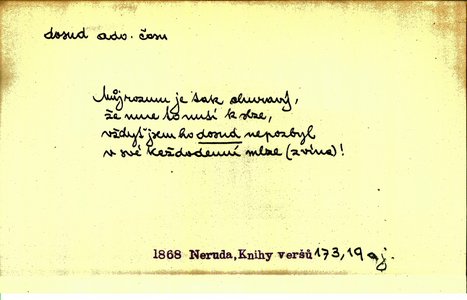 dosud adv. čas.
Můj rozum je tak churavý,
že mne to nutí k slze,
vždyť jsem ho dosud nepozbyl
v své každodenní mlze (z vína)!
1868 Neruda, Knihy veršů 173, 19 aj.